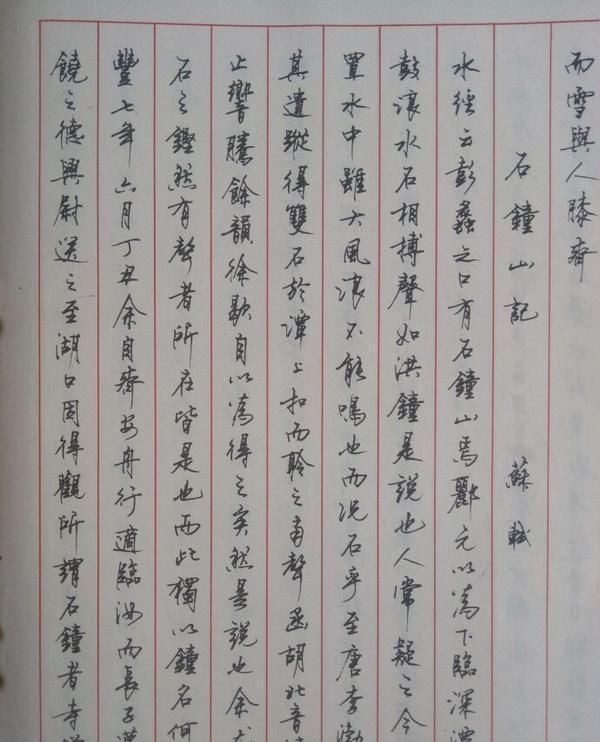 而雪與人膝齊
石鐘山記 蘇軾
水經云彭蠡之口有石鐘山焉酈元以為下臨深潭
鼓浪水石相搏聲如洪鐘是說也人常疑之今
置水中雖大風浪不能鳴也而況石乎至唐李渤
其遺蹤得雙石於潭上扣而聆之南聲函胡北音
止響騰餘韻徐歇自以為得之矣然是說也余
石之鏗然有聲者所在皆是也而此獨以鐘名何
豐七年六月丁丑余自齊安舟行適臨汝而長子邁
饒之德興尉送之至湖口因得觀所謂石鐘者寺